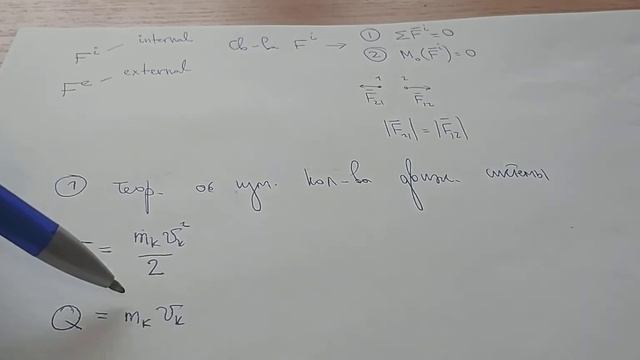 F^i – internal
F^e – external
Св-ва F^i → ① ΣF̅^i = 0
② M₀(F̅^i) = 0
1 2
F̅₂₁ F̅₁₂
|F̅₂₁| = |F̅₁₂|
① Теор. об изм. кол-ва движ. системы
= m_K v_K² / 2
Q = m_K v_K